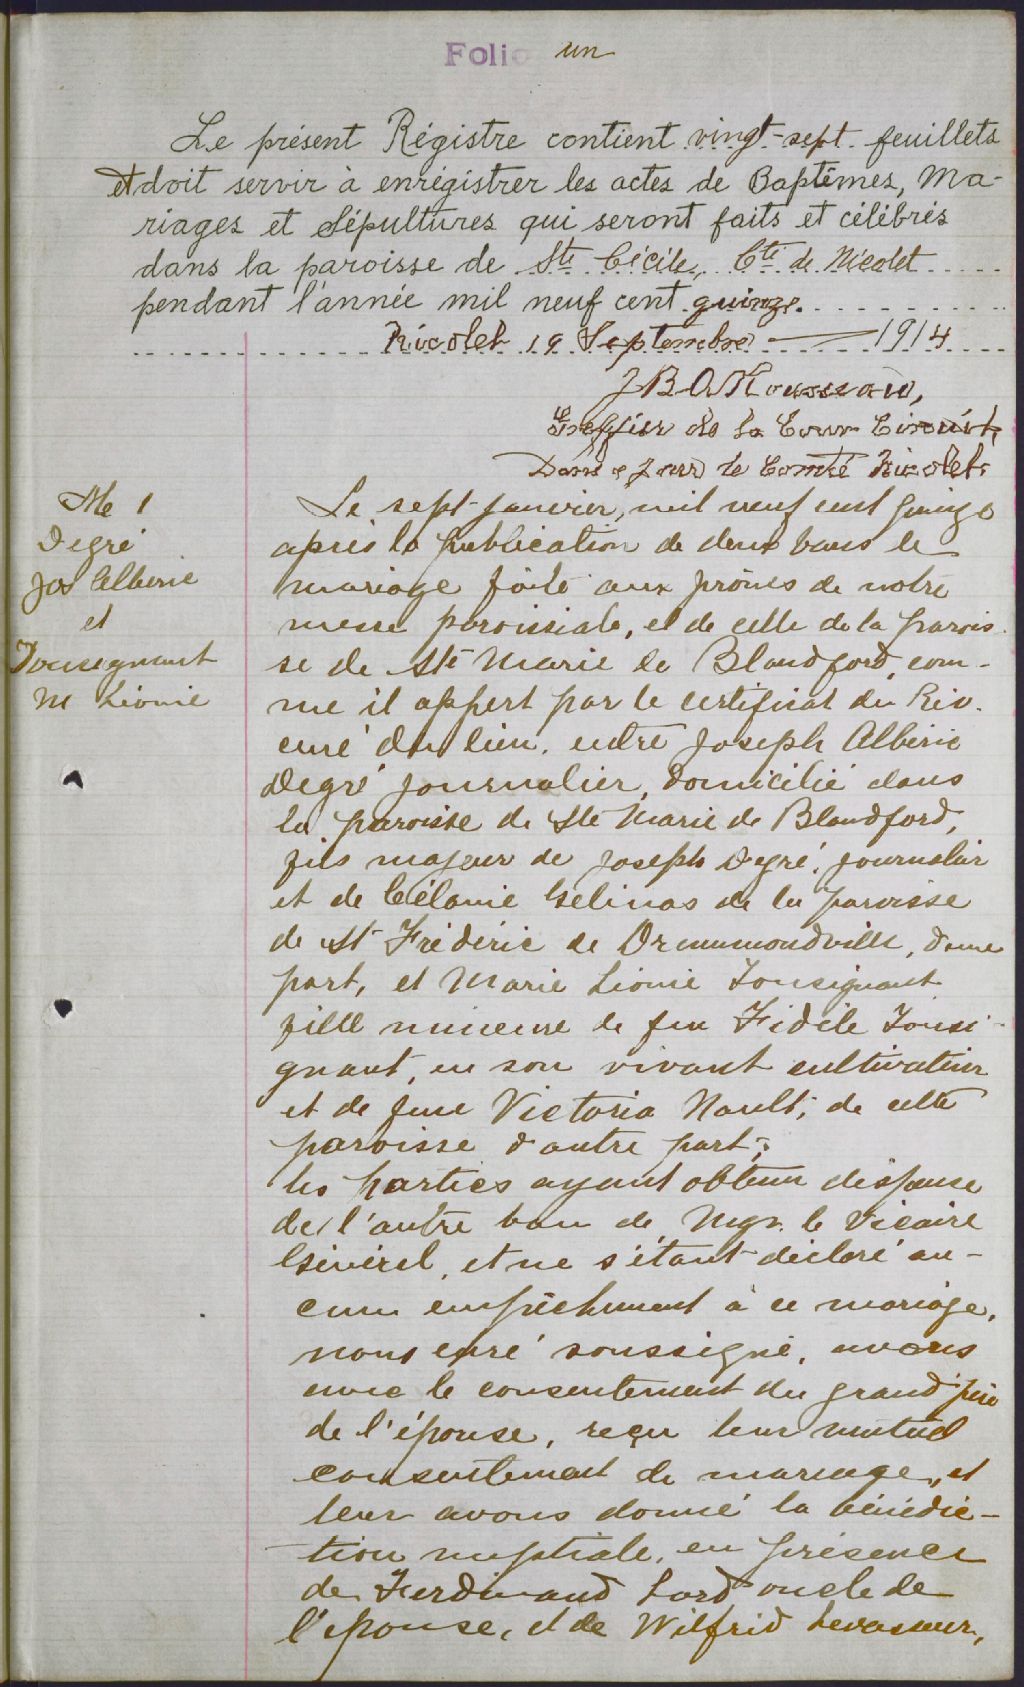 Folio un
Le présent Régistre contient vingt-sept feuillets
et doit servir à enrégistrer les actes de Baptêmes, Ma-
riages et Sépultures qui seront faits et célébrés
dans la paroisse de Ste Cécile, Cté de Nicolet
pendant l'année mil neuf cent quinze.
Nicolet 19 Septembre 1914
J B O H Rousseau,
Greffier de la Cour Circuit,
Dans & pour le Comté Nicolet.
M 1
Degré
Jos Albéric
et
Tousegnant
M Léonie
Le sept janvier, mil neuf cent quinze
après la publication de deux bans de
mariage faite aux prônes de notre
messe paroissiale, et de celle de la parois
se de Ste Marie de Blandford, com-
me il appert par le certificat du Rév.
curé du lieu, entre Joseph Albéric
Degré journalier, domicilié dans
la paroisse de Ste Marie de Blandford,
fils majeur de Joseph Degré, journalier
et de Célanie Gelinas de la paroisse
de St Frédéric de Drummondville, d'une
part, et Marie Léonie Tousignant
fille mineure de feu Fidèle Tousi-
gnant, en son vivant cultivateur
et de feue Victoria Nault, de cette
paroisse d'autre part;
les parties ayant obtenu dispense
de l'autre ban de Mgr. le Vicaire
Général, et ne s'étant déclaré au-
cun empêchement à ce mariage,
nous curé soussigné, avons
avec le consentement du grand'père
de l'épouse, reçu leur mutuel
consentement de mariage, et
leur avons donné la bénédic-
tion nuptiale, en présence
de Ferdinand Lord oncle de
l'épouse, et de Wilfrid Levasseur,